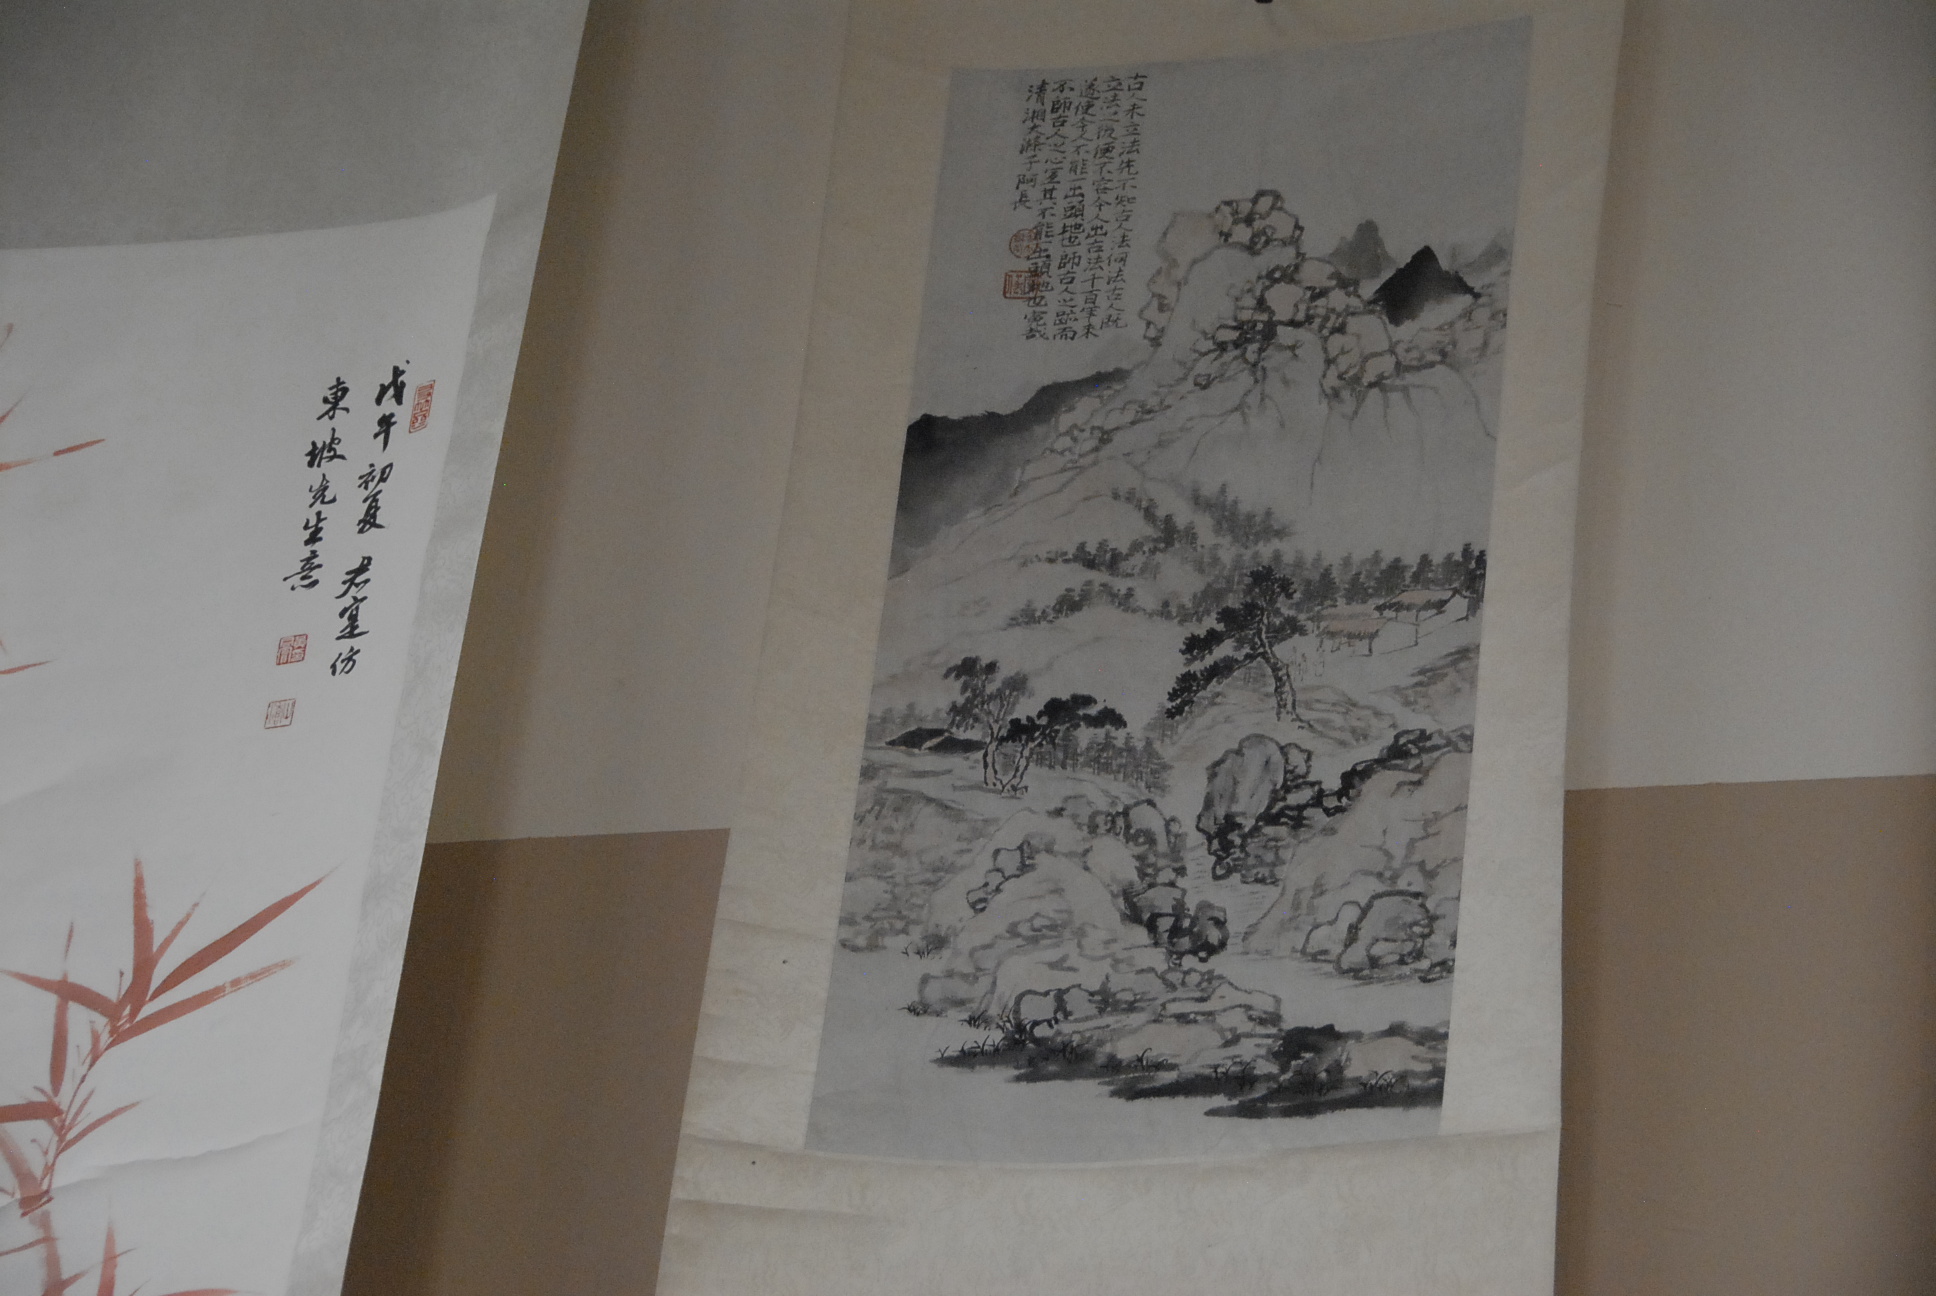 古人未立法先不知古人法何法古人既
立法之後便不容今人出古法千百年来
遂使今人不能一出頭地也師古人之跡而
不師古人之心宜其不能一出頭地也冤哉
清湘大滌子阿長
戊午初夏 君寔仿
東坡先生意